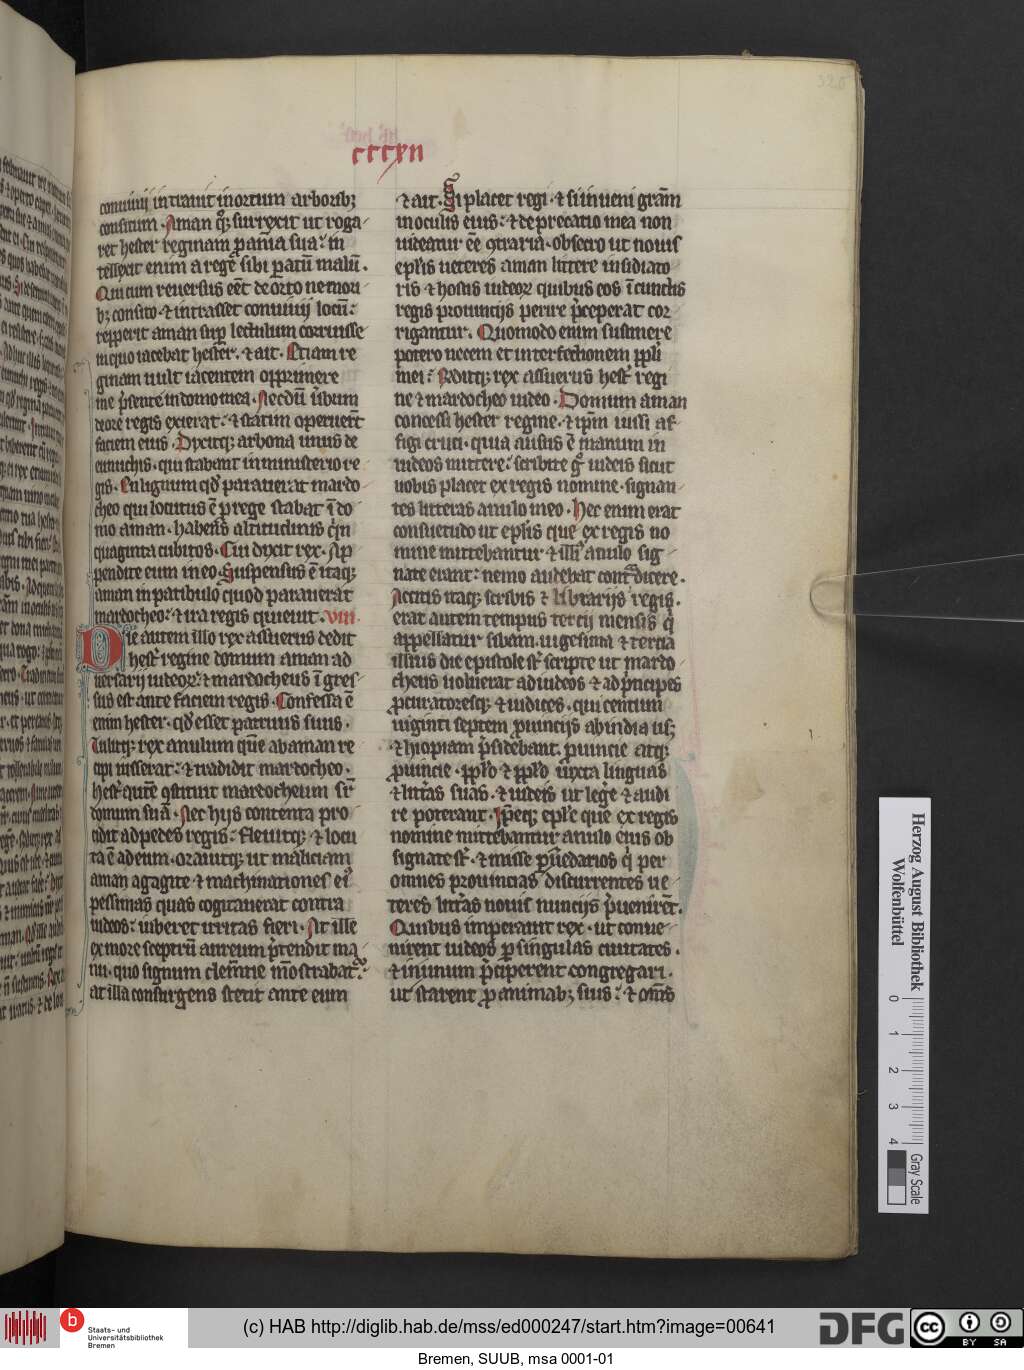 cccxii
conuiuij intrauit in ortum arboribꝫ
consitum · Aman qꝫ surrexit ut roga
ret hester reginam ꝓ aīa sua : in
tellexit enim a rege sibi paratū malū .
Qui cum reuersus eēt de orto nemori
bꝫ consito · ⁊ intrasset conuiuij locū :
repperit aman sup lectulum corruisse
in quo iacebat hester . ⁊ ait · Etiam re
ginam uult iacentem opprimere
me p̄sente in domo mea . Necdū ūbum
de ore regis exierat : ⁊ statim operuerūt
faciem eius · Dixitqꝫ arbona unus de
eunuchis · qui stabant in ministerio re
gis · En lignum qd̄ parauerat mardo
cheo qui locutus ē p rege stabat ī do
mo aman · habens altitudinis q̄in
quaginta cubitos · Cui dixit rex · Ap
pendite eum in eo · Suspensus ē itaqꝫ
aman in patibulo quod parauerat
mardocheo : ⁊ ira regis quieuit . viii
Die autem illo rex assuerus dedit
hest̄ regine domum aman ad
uersarij iudeoꝝ : ⁊ mardocheus ī gres
sus est ante faciem regis · Confessa ē
enim hester · qd̄ esset patruus suus ·
Tulitqꝫ rex anulum quē ab aman re
cipi iusserat : ⁊ tradidit mardocheo ·
Hest̄ autē ꝯstituit mardocheum sr̄
domum suā · Nec hijs contenta pro
cidit ad pedes regis : fleuitqꝫ · ⁊ locu
ta ē ad eum · orauitqꝫ ut maliciam
aman agagite ⁊ machinationes eiꝰ
pessimas quas cogitauerat contra
iudeos : iuberet irritas fieri · At ille
ex more sceptrū aureum p̄tendit ma
nu · quo signum clem̄tie mōstrabat̄ :
at illa consurgens stetit ante eum
⁊ ait · Si placet regi · ⁊ si inueni grām
in oculis eius : ⁊ deprecatio mea non
uideatur eē ꝯtraria · obsecro ut nouis
ep̄lis ueteres aman littere insidiato
ris ⁊ hostis iudeoꝝ quibus eos ī cunctis
regis prouincijs perire p̄ceperat cor
rigantur . Quomodo enim sustinere
potero necem et interfectionem ppl̄i
mei : Reditqꝫ rex assuerus hest̄ regi
ne ⁊ mardocheo iudeo · Domum aman
concessi hester regine · ⁊ ip̄m iussi af
figi cruci · quia ausus ē manum in
iudeos mittere : scribite g̊ iudeis sicut
uobis placet ex regis nomine · signan
tes litteras anulo meo · Hec enim erat
consuetudo ut ep̄lis que ex regis no
mine mittebantur ⁊ illiꝰ anulo sig
nate erant : nemo audebat cont̄dicere .
Accitis itaqꝫ scribis ⁊ librarijs regis ·
erat autem tempus tercij mensis q̇
appellatur siban · uigesima ⁊ tertia
illius die epistole st̄ scripte ut mardo
cheus uoluerat ad iudeos ⁊ ad p̄ncipes
ꝓcuratoresqꝫ ⁊ iudices · qui centum
uiginti septem ꝓuincijs ab india usqꝫ
⁊hiopiam p̄sidebant · ꝓuincie atqꝫ
ꝓuincie · ppl̄o ⁊ ppl̄o iuxta linguas
⁊ litt̄as suas · ⁊ iudeis ut lege ⁊ audi
re poterant · Ip̄eqꝫ epl̄e que ex regis
nomine mittebantur anulo eius ob
signate st̄ · ⁊ misse ꝑ ueredarios q̇ per
omnes prouincias discurrentes ue
teres litt̄as nouis nuncijs p̄uenirēt .
Quibus imperauit rex · ut conue
nirent iudeos ꝑ singulas ciuitates ·
⁊ in unum p̄ciperent congregari ·
ut starent ꝓ animabꝫ suis : ⁊ om̄s
Herzog August Bibliothek
Wolfenbüttel
0 1 2 3 4
Gray Scale
HAB
b Staats- und
Universitätsbibliothek
Bremen
(c) HAB http://diglib.hab.de/mss/ed000247/start.htm?image=00641
DFG
cc BY SA
Bremen, SUUB, msa 0001-01